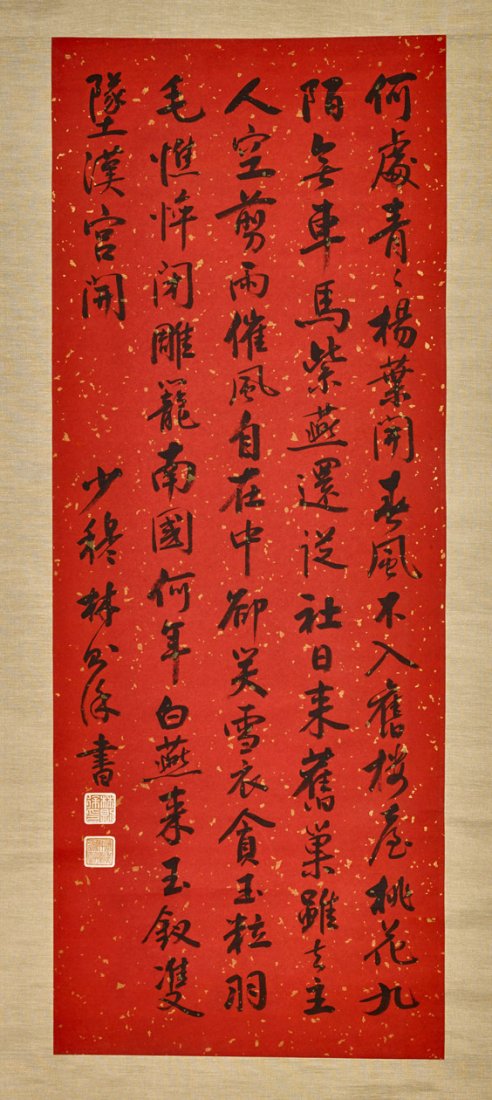 何處青〻楊葉開春風不入舊樓臺桃花九
陌無車馬紫燕還從社日来舊巢雖去主
人空剪雨催風自在中卻笑雪衣貪玉粒羽
毛憔悴閉雕籠南國何年白燕来玉釵雙
墜漢宮開
少穆林則徐書